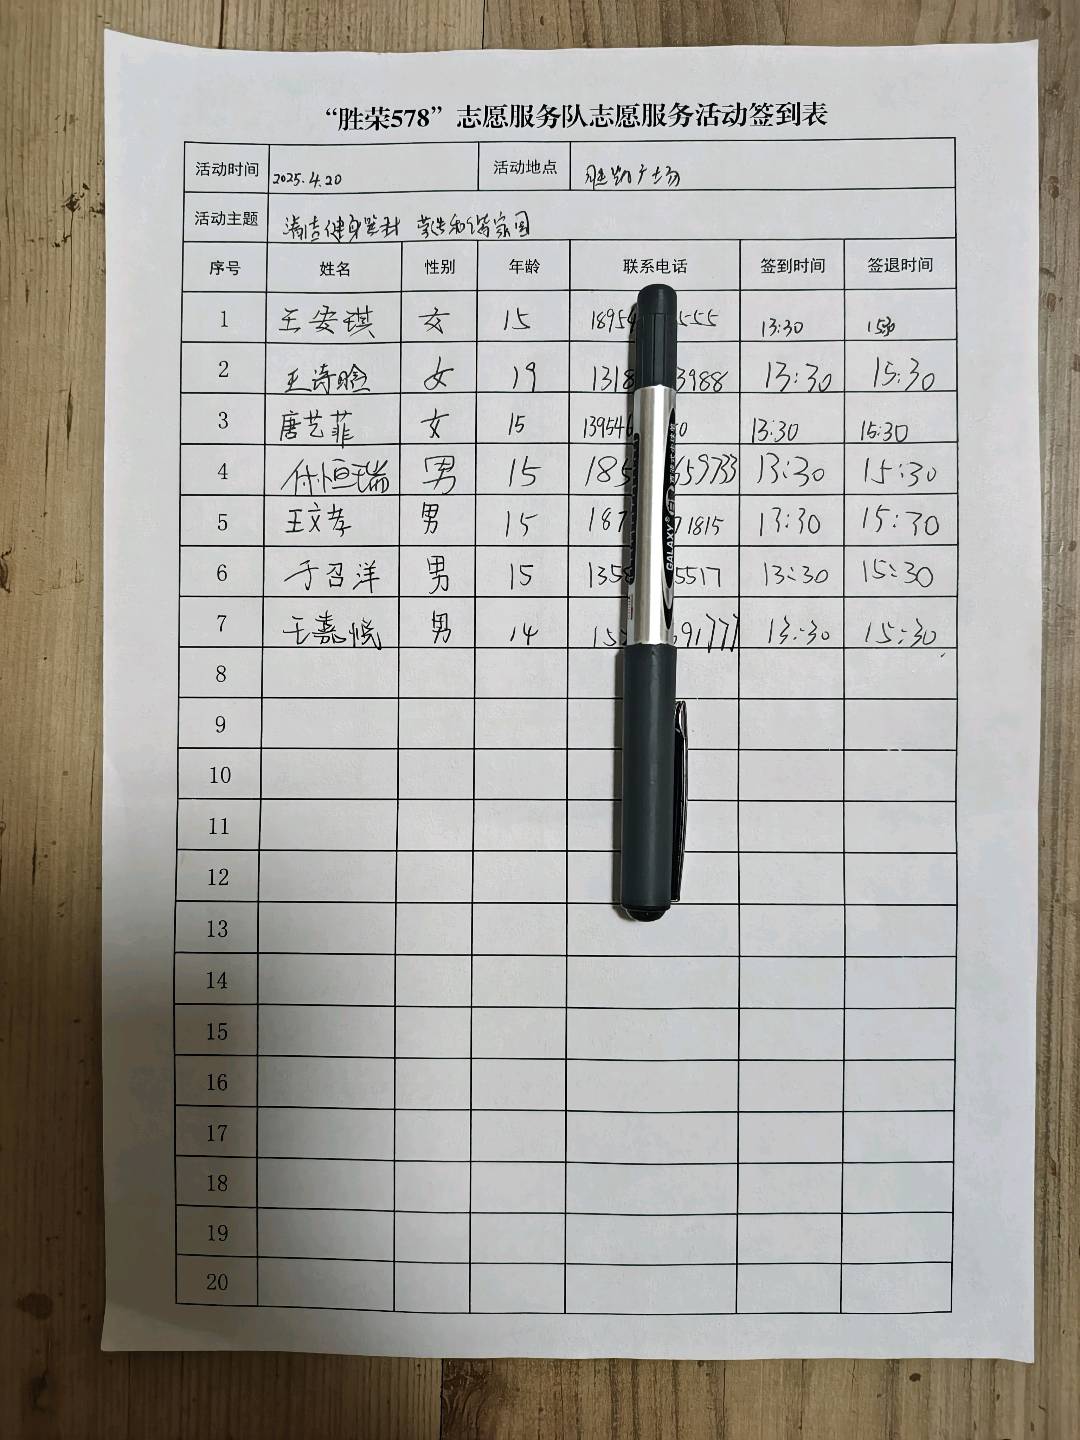 “胜荣578”志愿服务队志愿服务活动签到表
活动时间 2025.4.20 活动地点 胜凯广场
活动主题 清洁健身器材 营造和谐家园
序号 姓名 性别 年龄 联系电话 签到时间 签退时间
1 王安琪 女 15 18954 555 13:30 1530
2 王诗晗 女 19 1318 3988 13:30 15:30
3 唐艺菲 女 15 139546 0 13:30 15:30
4 付恒瑞 男 15 185 659733 13:30 15:30
5 王文孝 男 15 187 1815 13:30 15:30
6 于召洋 男 15 1358 5517 13:30 15:30
7 王嘉悦 男 14 15 691777 13:30 15:30
8
9
10
11
12
13
14
15
16
17
18
19
20
GALAXY®